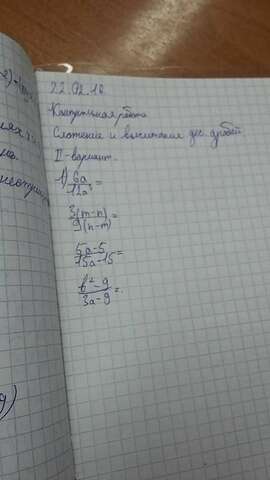 22.02.16
Контрольная работа
Сложение и вычитание дес. дробей
II-вариант.
1) 6a/12a³=
3(m-n)/9(n-m)=
5a-5/15a-15=
b²-9/3a-9=